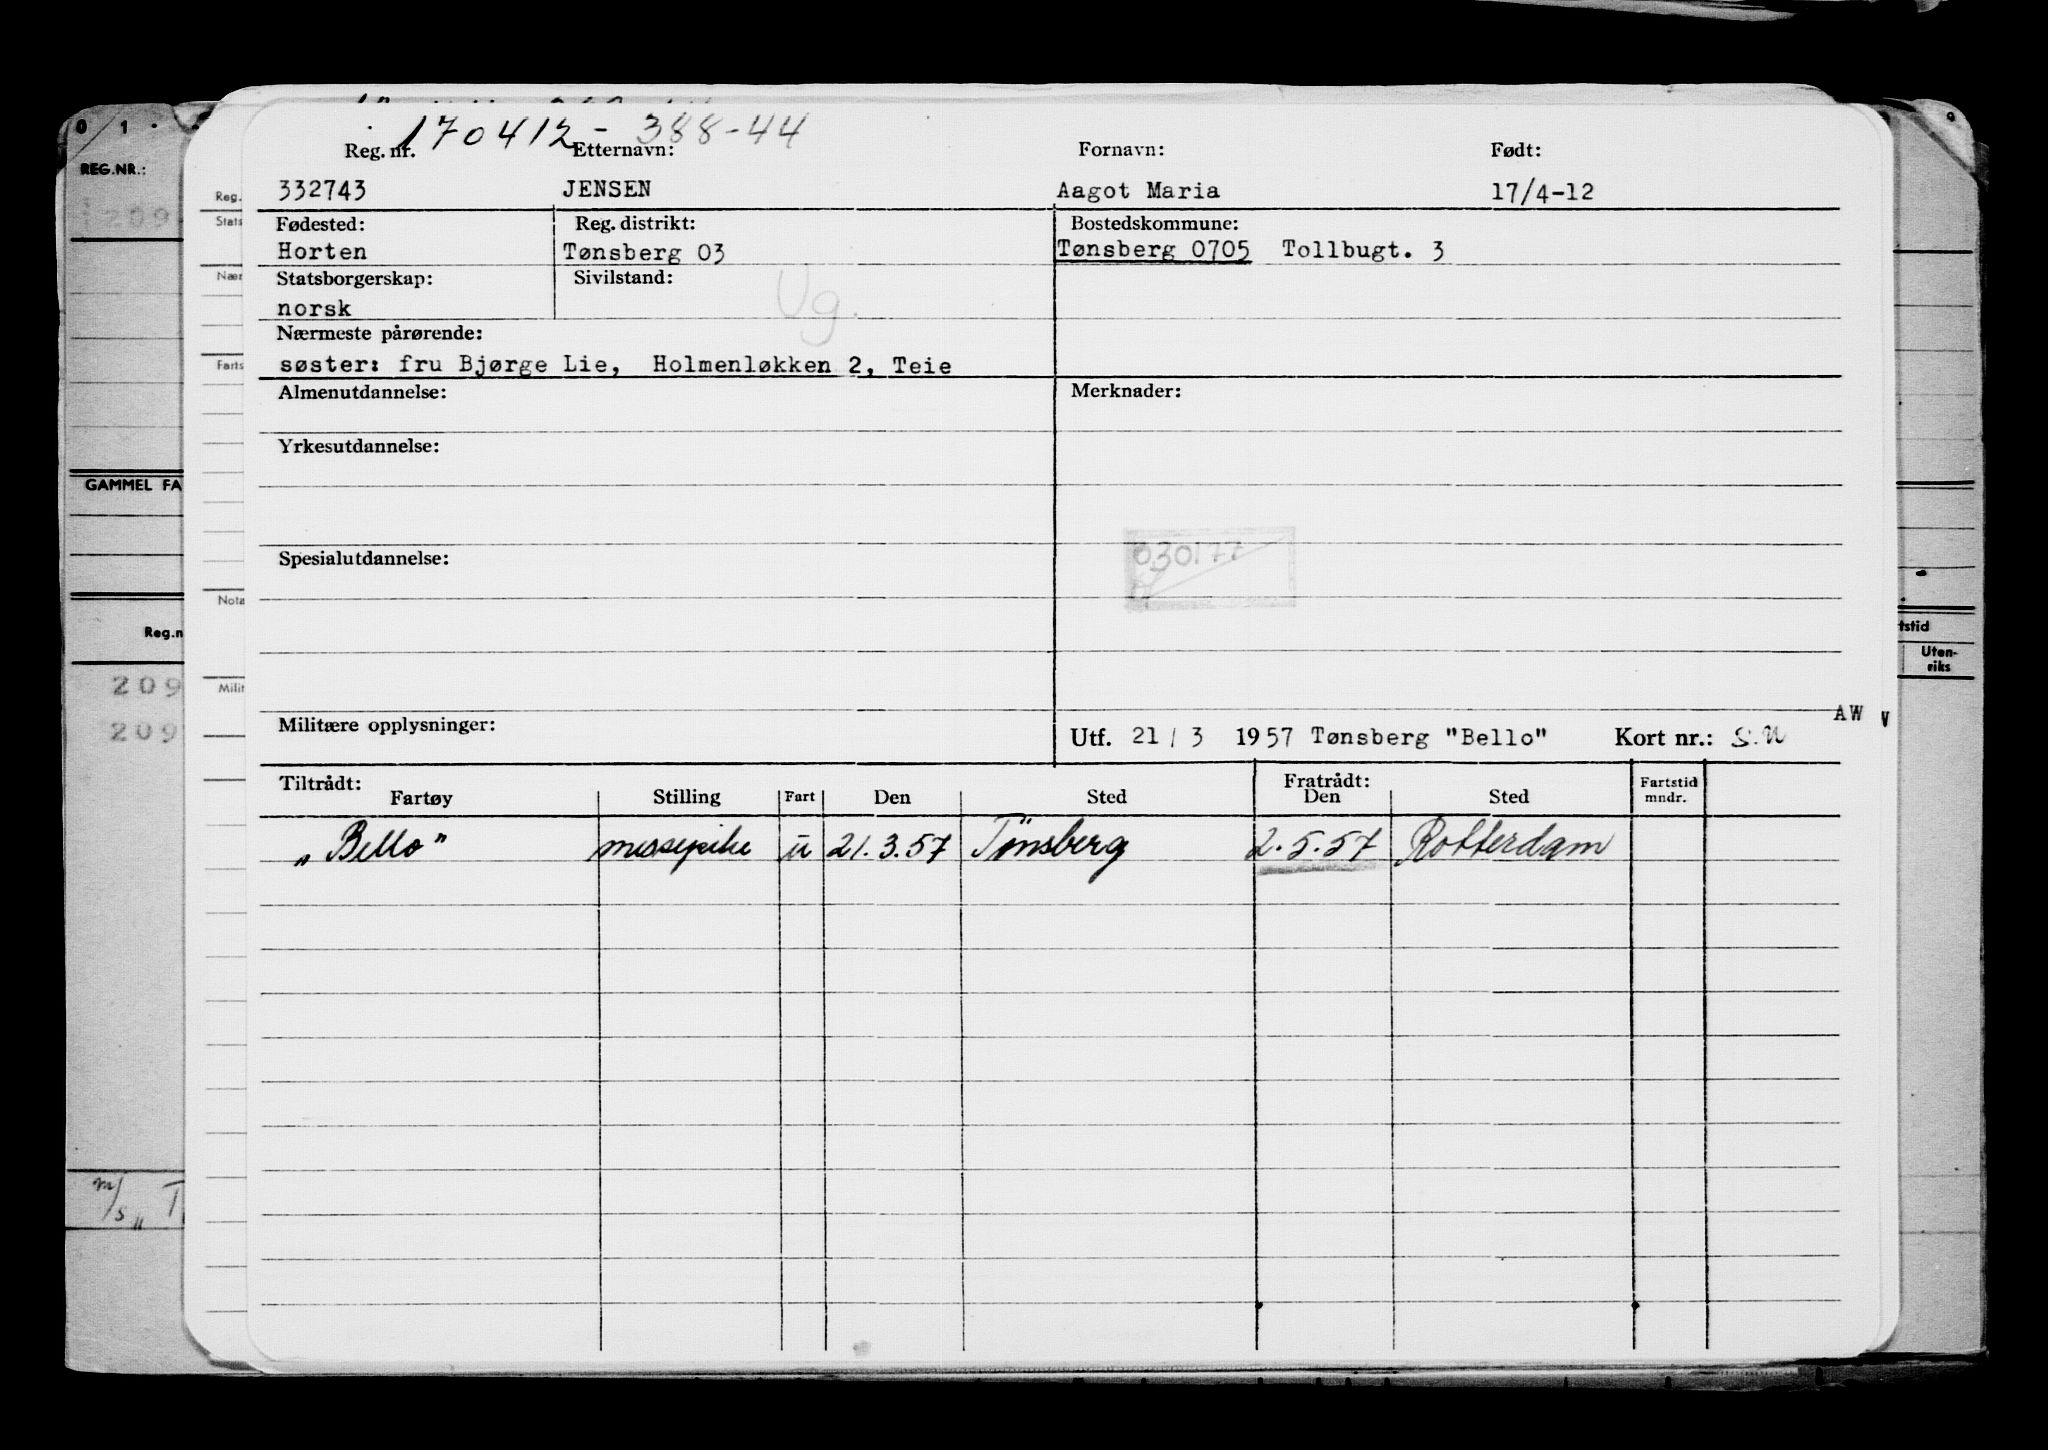 170412-388-44
Reg. nr. Etternavn: Fornavn: Født:
332743 JENSEN Aagot Maria 17/4-12
Fødested: Reg. distrikt: Bostedskommune:
Horten Tønsberg 03 Tønsberg 0705 Tollbugt. 3
Statsborgerskap: Sivilstand: Ug.
norsk
Nærmeste pårørende:
søster: fru Bjørge Lie, Holmenløkken 2, Teie
Almenutdannelse: Merknader:
Yrkesutdannelse:
030177
Spesialutdannelse:
AW
Militære opplysninger: Utf. 21/3 1957 Tønsberg "Bello" Kort nr.: S.N
Tiltrådt: Fratrådt:
Fartøy Stilling Fart Den Sted Den Sted Fartstid mndr.
„Bello" messepike u 21.3.57 Tønsberg 2.5.57 Rotterdam
0 1 .
REG.NR.:
209
GAMMEL FA
Reg.n
209
209
m/s „T
Reg.
Stats
Nær
Farts
Nota
Milit
9
tstid
Uten-
riks